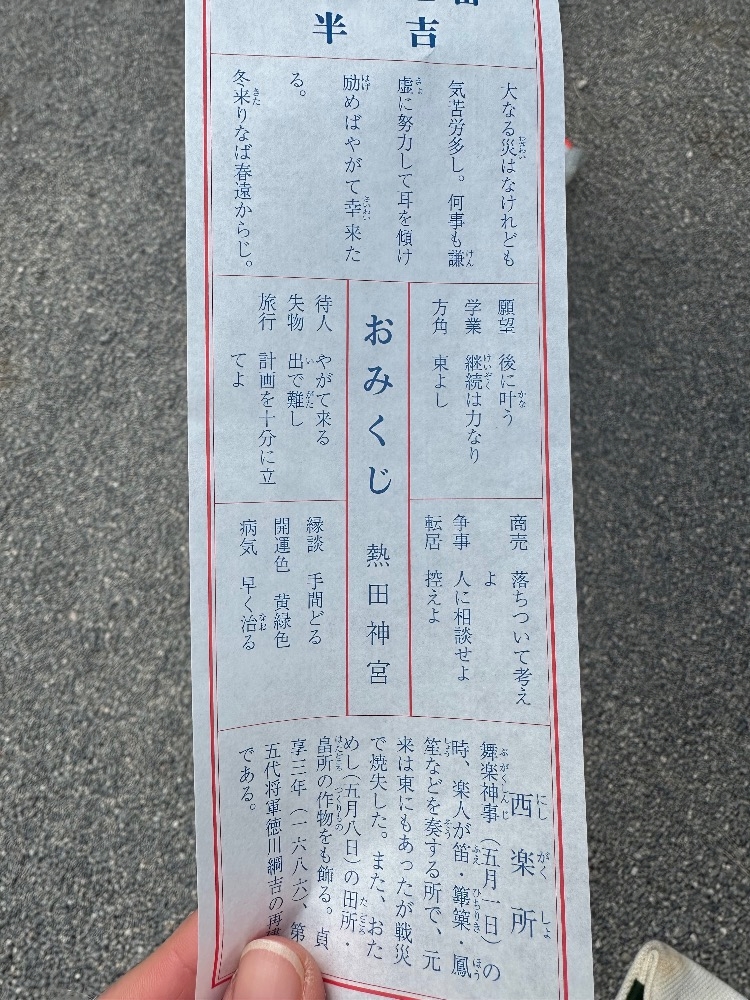 半吉
大なる災はなけれども
気苦労多し。何事も謙
虚に努力して耳を傾け
励めばやがて幸来た
る。
冬来りなば春遠からじ。
願望 後に叶う
学業 継続は力なり
方角 東よし
商売 落ちついて考え
よ
争事 人に相談せよ
転居 控えよ
おみくじ 熱田神宮
待人 やがて来る
失物 出で難し
旅行 計画を十分に立
てよ
縁談 手間どる
開運色 黄緑色
病気 早く治る
西楽所
舞楽神事（五月一日）の
時、楽人が笛・篳篥・鳳
笙などを奏する所で、元
来は東にもあったが戦災
で焼失した。また、おた
めし（五月八日）の田所・
畠所の作物をも飾る。貞
享三年（一六八六）、第
五代将軍徳川綱吉の再
である。